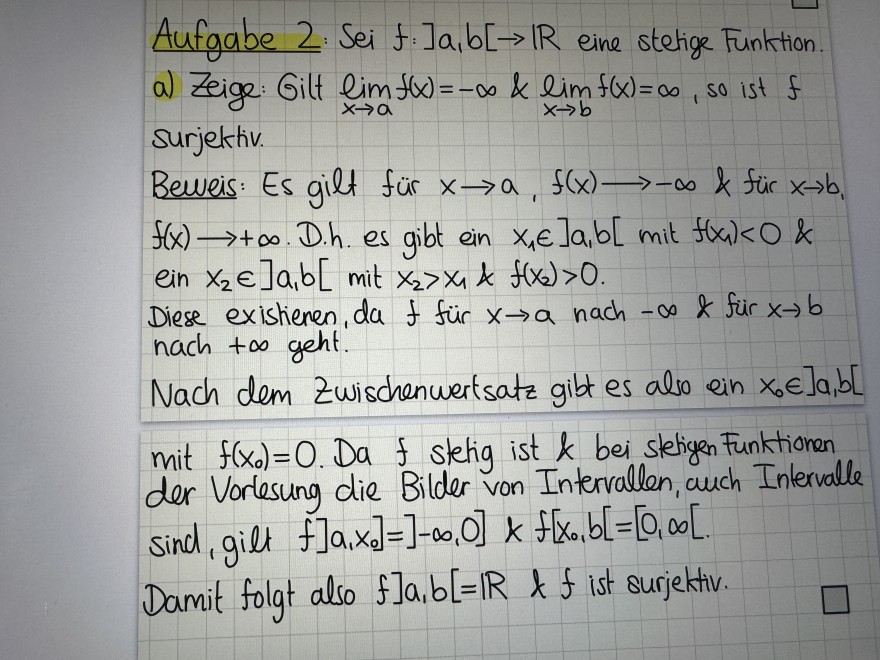 Aufgabe 2: Sei f: ]a,b[ → ℝ eine stetige Funktion.
a) Zeige: Gilt lim f(x) = -∞ & lim f(x) = ∞, so ist f
x→a x→b
surjektiv.
Beweis: Es gilt für x → a, f(x) → -∞ & für x→b,
f(x) → +∞. D.h. es gibt ein x₁∈]a,b[ mit f(x₁)<0 &
ein x₂∈]a,b[ mit x₂>x₁ & f(x₂)>0.
Diese existieren, da f für x→a nach -∞ & für x→b
nach +∞ geht.
Nach dem Zwischenwertsatz gibt es also ein x₀∈]a,b[
mit f(x₀)=0. Da f stetig ist & bei stetigen Funktionen
der Vorlesung die Bilder von Intervallen, auch Intervalle
sind, gilt f]a,x₀]=]-∞,0] & f[x₀,b[=[0,∞[.
Damit folgt also f]a,b[=ℝ & f ist surjektiv.